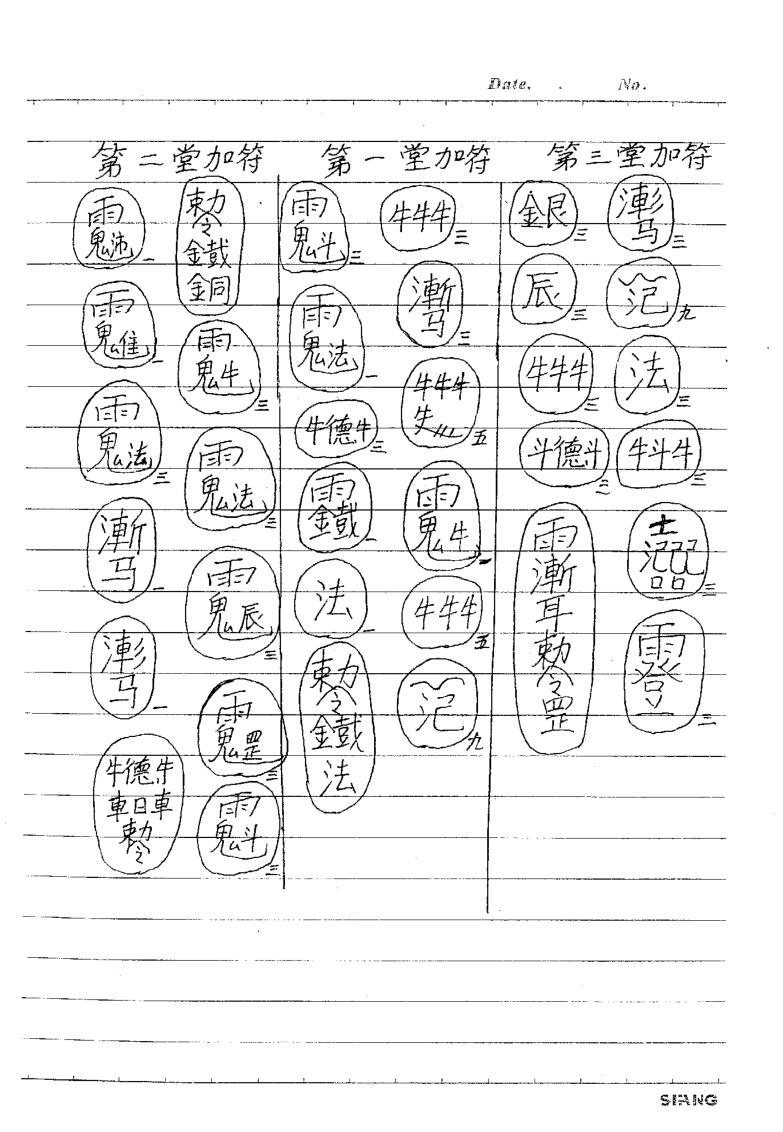 Date. . No.
第二堂加符
雨
鬼沛
一
雨
鬼隹
一
雨
鬼法
三
漸
马
一
马
一
牛德牛
車日車
勅
令
勅
令
鐵
銅
雨
鬼牛
三
雨
鬼法
三
雨
鬼辰
三
雨
鬼罡
三
雨
鬼斗
三
第一堂加符
雨
鬼斗
三
雨
鬼法
一
牛德牛
三
雨
鐵
一
法
一
勅
令
鐵
法
牛牛牛
三
漸
马
三
牛牛牛
五
雨
鬼牛
牛牛牛
五
氾
九
第三堂加符
銀
三
辰
三
牛牛牛
三
斗德斗
三
雨
漸
耳
勅
令
罡
马
三
氾
九
法
三
牛斗牛
三
三
雨
登
二
SIANG